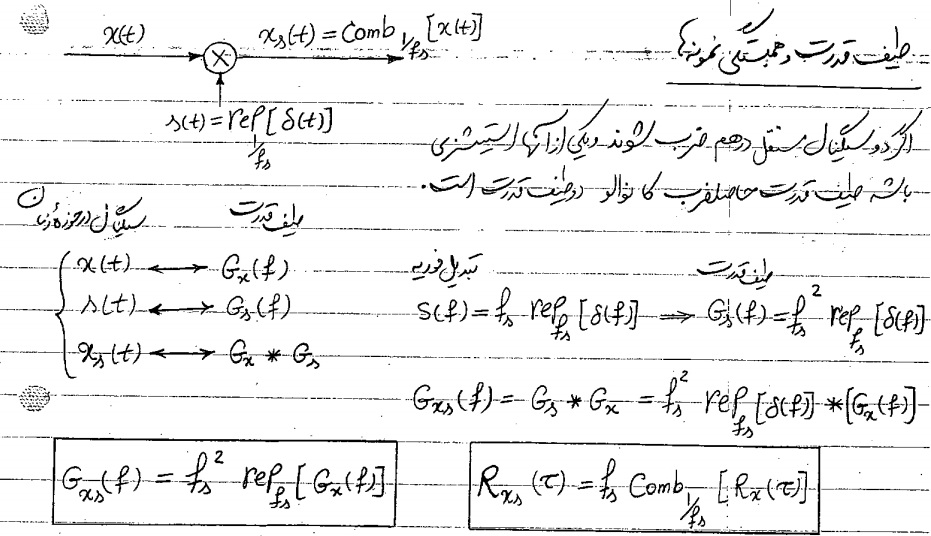 طیف قدرت و همبستگی نمونه‌ها
x(t) x_s(t) = Comb_{1/f_s} [x(t)]
s(t) = rep_{1/f_s} [δ(t)]
اگر دو سیگنال مستقل درهم ضرب شوند و یکی از آنها استیشنری
باشد طیف قدرت حاصلضرب کانوالو دو طیف قدرت است.
سیگنال در حوزه زمان طیف قدرت
x(t) ⟷ G_x(f)
s(t) ⟷ G_s(f)
x_s(t) ⟷ G_x * G_s
تبدیل فوریه طیف قدرت
S(f) = f_s rep_{f_s} [δ(f)] ⟹ G_s(f) = f_s^2 rep_{f_s} [δ(f)]
G_{xs}(f) = G_s * G_x = f_s^2 rep_{f_s} [δ(f)] * [G_x(f)]
G_{xs}(f) = f_s^2 rep_{f_s} [G_x(f)]
R_{xs}(τ) = f_s Comb_{1/f_s} [R_x(τ)]